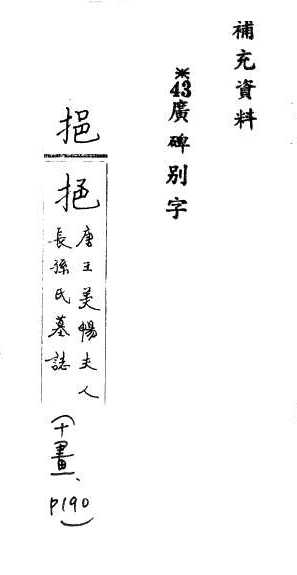 補充資料
※43廣碑別字
挹
唐王美暢夫人
長孫氏墓誌
(十畫、
p190)